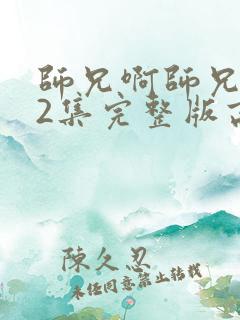 師兄啊師兄
2集完整版高
陳久忍
未经同意禁止转载